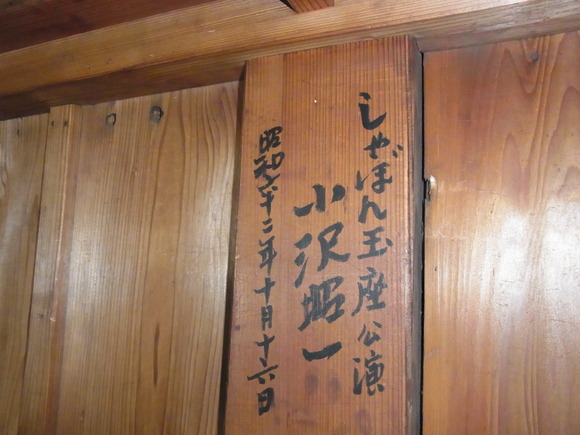 しゃぼん玉座公演
小沢昭一
昭和六十二年十月十六日